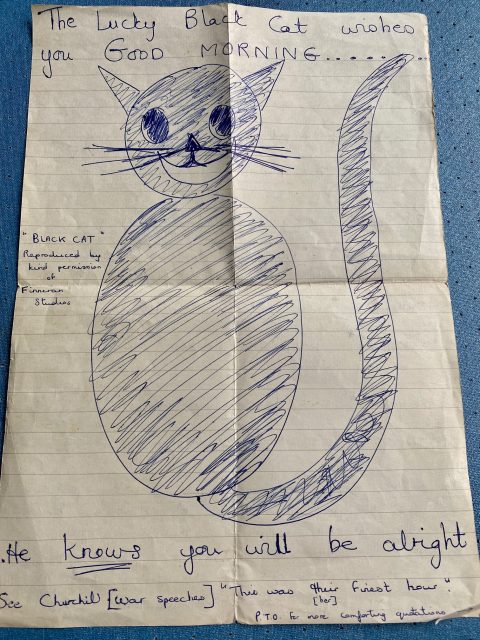 The Lucky Black Cat wishes
you GOOD MORNING..........
"BLACK CAT"
Reproduced by
kind permission
of
Finneran
Studios
He knows you will be alright
See Churchill [war speeches] "This was their finest hour".
[her]
P.T.O. for more comforting quotations